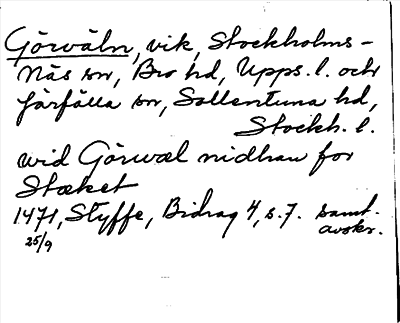 Görväln, vik, Stockholms-
Näs sn, Bro hd, Upps. l. och
Järfälla sn, Sollentuna hd,
Stockh. l.
wid Görwæl nidhan for
Stæket
1471, Styffe, Bidrag 4, s. 7. samt.
25/9 avskr.